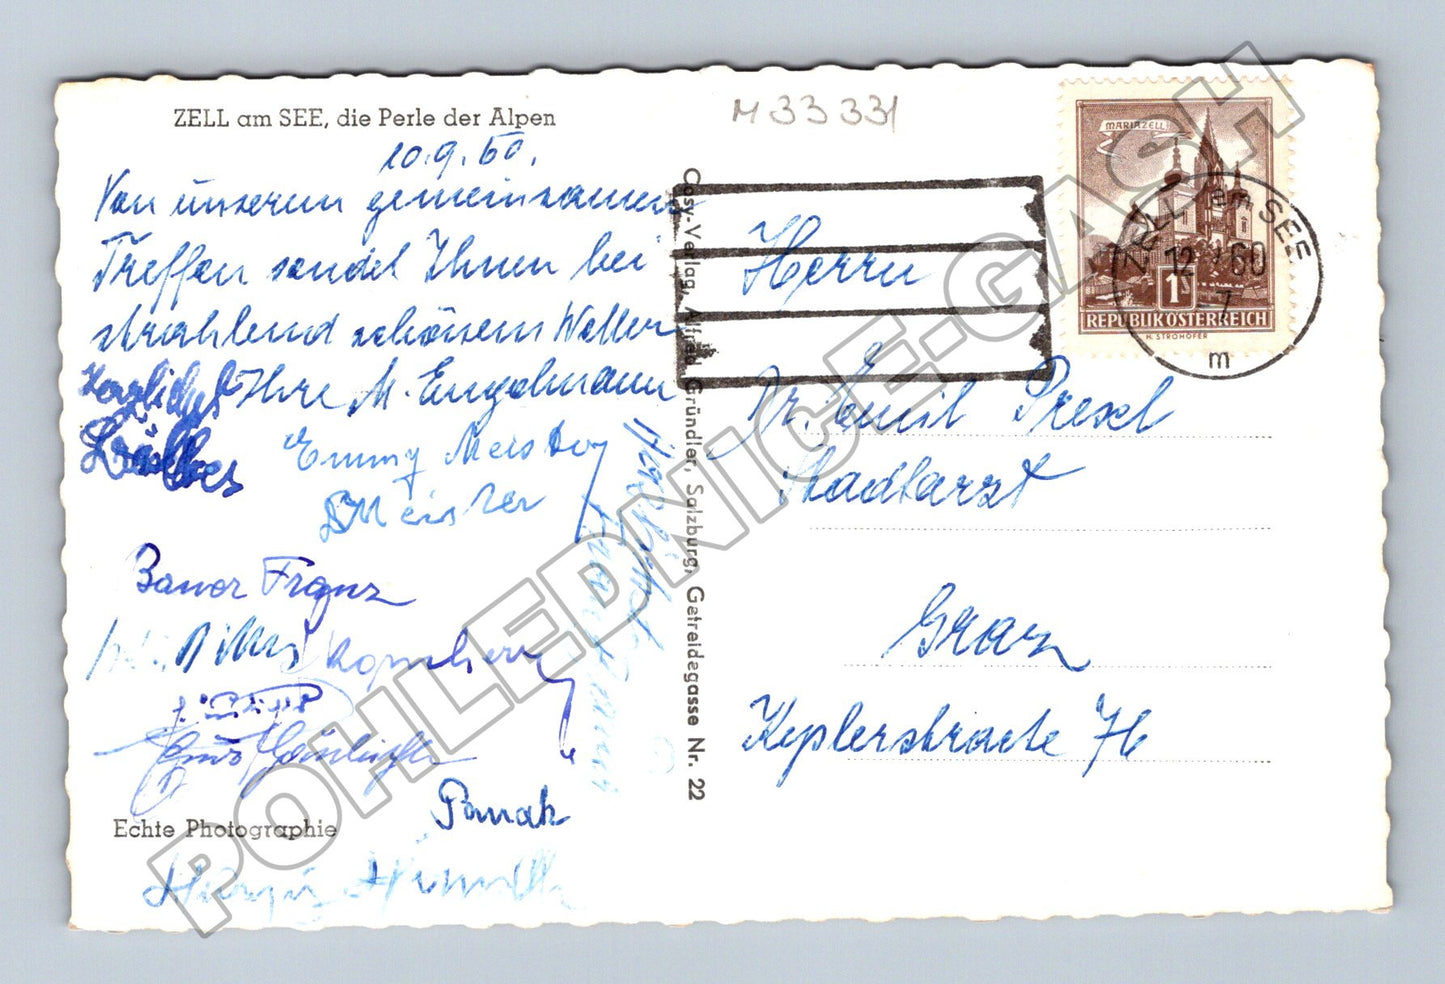 ZELL am SEE, die Perle der Alpen
10.9.60.
Von unserem gemeinsamen
Treffen sendet Ihnen bei
strahlend schönem Wetter
Herzlichst Ihre M. Engelmann
Emmy Meister
Meister
Bauer Franz
Panak
Echte Photographie
Cosy-Verlag, Alfred Gründler, Salzburg, Getreidegasse Nr. 22
M 33 331
MARIAZELL
1S
REPUBLIK ÖSTERREICH
H. STROHOFER
ZELL am SEE
12 60
7
m
Herrn
Dr. Emil Presel
Stadtarzt
Graz
Keplerstraße 76
POHLEDNICE-GASH